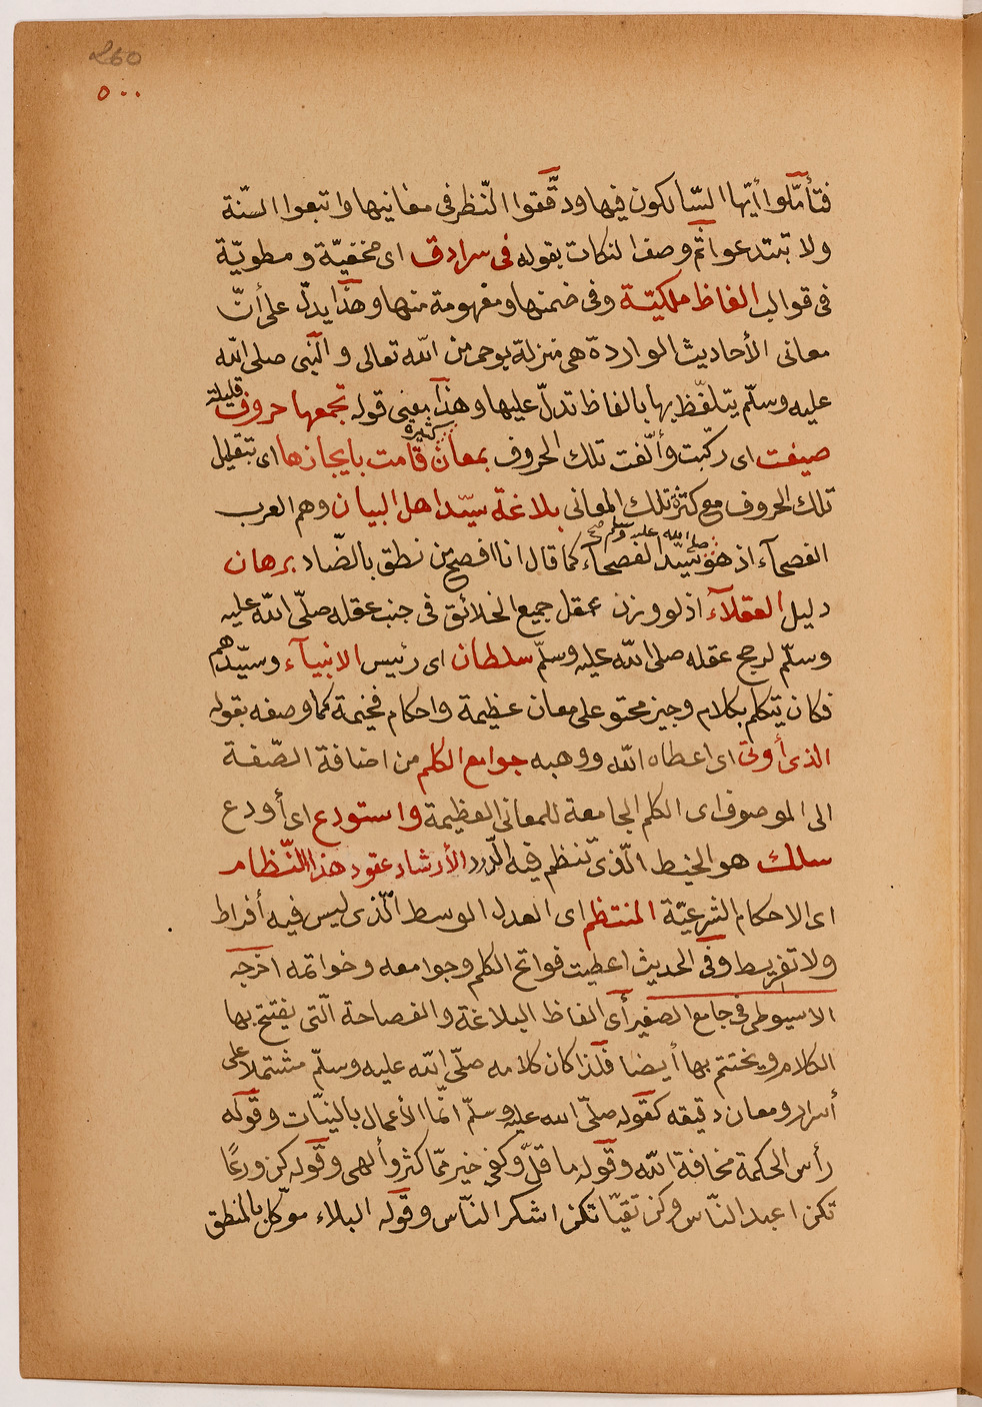 260
٥٠٠
فتأمّلوا أيّها السّالكون فيها ودقّقوا النّظر فى معانيها واتبعوا السنّة
ولا تبتدعوا ثم وصف النكات بقوله فى سرادق اى مخفيّة ومطويّة
فى قوالب الفاظ ملكيّة وفى ضمنها ومفهومة منها وهذا يدلّ على أنّ
معانى الأحاديث الواردة هى منزلة بوحى من الله تعالى والنّبى صلى الله
عليه وسلّم يتلفّظ بها بالفاظ تدلّ عليها وهذا بعنى قوله تجمعها حروف قليلة
صيغت اى ركّبت وألّفت تلك الحروف بمعان كثيرة قامت بايجازها اى بتقليل
تلك الحروف مع كثرة تلك المعانى بلاغة سيّد اهل البيان وهم العرب
الفصحآء اذ هو صلى الله عليه وسلم صح سيّد الفصحآء كما قال انا افصح من نطق بالضّاد برهان
دليل العقلآء اذ لو وزن عقل جميع الخلائق فى جنب عقله صلّى الله عليه
وسلّم لرجح عقله صلى الله عليه وسلّم سلطان اى رئيس الانبيآء وسيّدهم
فكان يتكلم بكلام وجيز محتو على معان عظيمة واحكام فخيمة كما وصفه بقوله
الذى أوتى اى اعطاه الله ووهبه جوامع الكلم من اضافة الصّفة
الى الموصوف اى الكلم الجامعة للمعانى العظيمة واستودع اى أودع
سلك هو الخيط الّذى تنظم فيه الدّرر الأرشاد عقود هذا النّظام
اى الاحكام الشرعيّة المنتظم اى العدل الوسط الّذى ليس فيه أفراط
ولا تفريط وفى الحديث اعطيت فواتح الكلم وجوامعه وخواتمه اخرجه
الاسيوطى فى جامع الصغير أى الفاظ البلاغة والفصاحة الّتى يفتتح بها
الكلام ويختتم بها أيضا فلذا كان كلامه صلّى الله عليه وسلّم مشتملا على
أسرار ومعان دقيقه كقوله صلّى الله عليه وسلّم انّما الأعمال بالنيّات وقوله
رأس الحكمة مخافة الله وقوله ما قلّ وكفى خير ممّا كثر وألهى وقوله كن ورعًا
تكن اعبد النّاس وكن تقيّا تكن اشكر النّاس وقوله البلاء موكّل بالمنطق